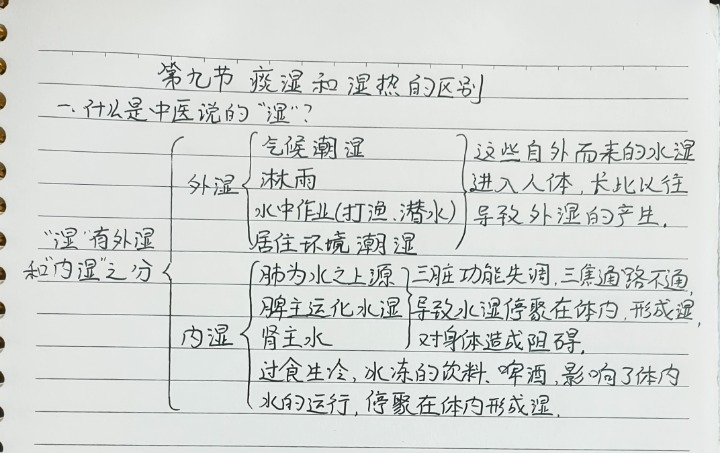 第九节 痰湿和湿热的区别
一.什么是中医说的“湿”?
“湿”有外湿
和“内湿”之分
外湿
气候潮湿
淋雨
水中作业(打渔、潜水)
居住环境潮湿
这些自外而来的水湿
进入人体,长此以往
导致外湿的产生.
内湿
肺为水之上源
脾主运化水湿
肾主水
三脏功能失调,三焦通路不通,
导致水湿停聚在体内,形成湿,
对身体造成阻碍.
过食生冷,冰冻的饮料、啤酒,影响了体内
水的运行,停聚在体内形成湿.